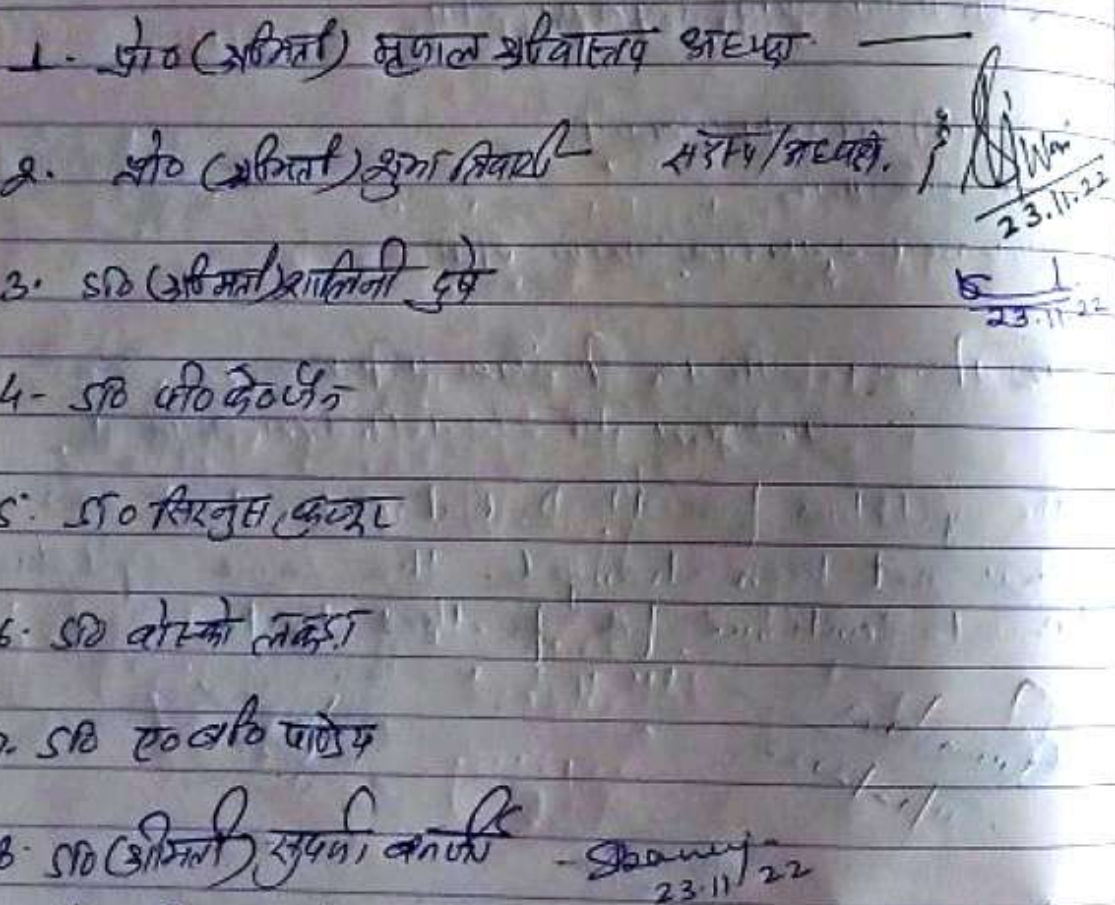 1. प्रो० (श्रीमती) मृणाल श्रीवास्तव अध्यक्ष —
2. प्रो० (श्रीमती) शुभा तिवारी सदस्य/अध्यक्ष.
23.11.22
3. डॉ० (श्रीमती) शालिनी दुबे
23.11.22
4- डॉ० पी० के० जैन
5. डॉ० सिरनुस कुजूर
6. डॉ० बोस्को लकड़ा
7. डॉ० ए० बी० पाण्डेय
8. डॉ० (श्रीमती) सुपर्णा बनर्जी - Sbanerj
23.11.22